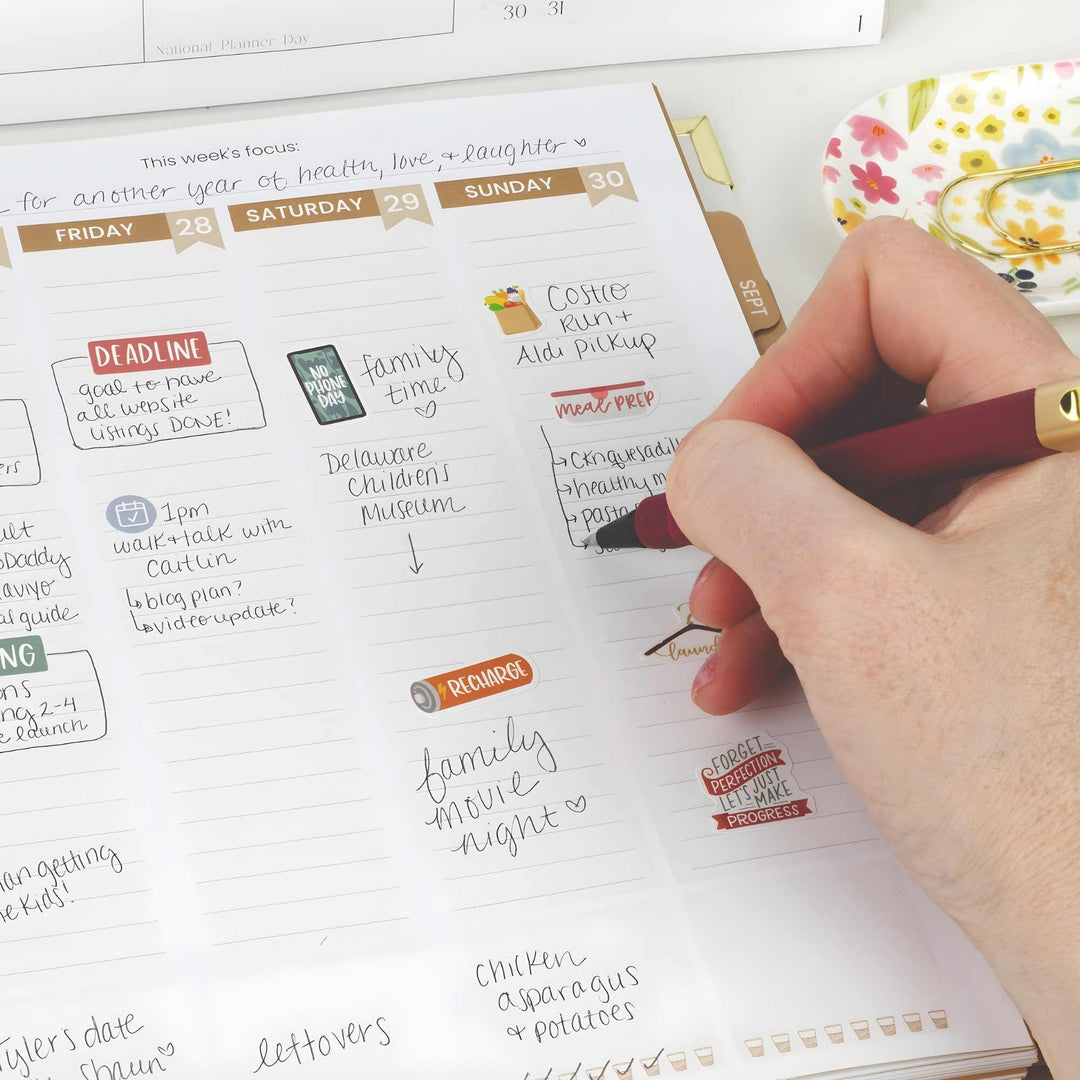 National Planner Day
30 31
1
This week's focus:
for another year of health, love, + laughter
FRIDAY 28
DEADLINE
goal to have
all website
listings DONE!
1pm
walk + talk with
Caitlin
blog plan?
video update?
leftovers
SATURDAY 29
NO
PHONE
DAY
family
time
Delaware
Children's
Museum
RECHARGE
family
movie
night
chicken
asparagus
& potatoes
SUNDAY 30
Costco
Run +
Aldi Pickup
meal PREP
healthy
FORGET
PERFECTION
LET'S JUST
MAKE
PROGRESS
SEPT
guide
2-4
launch
getting
Kids!
Tyler's date
Shaun